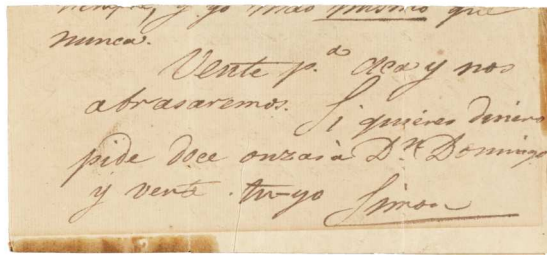 siempre, y yo mas mismo que
nunca.
Vente p.ª aca y nos
abrasaremos. Si quieres dinero
pide doce onzas à Dn. Domingo
y verá. tuyo Simon